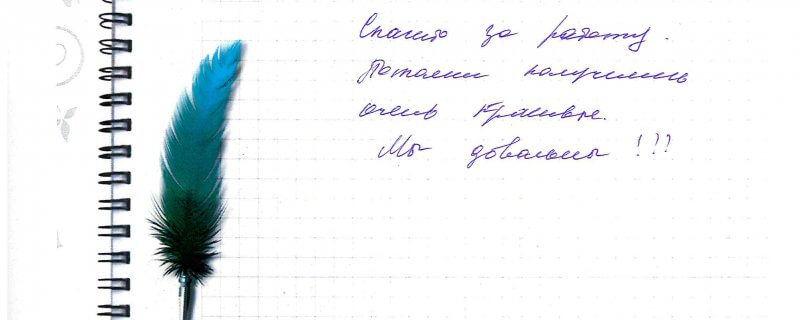 Спасибо за работу.
Потолки получились
очень красивые.
Мы довольны !!!